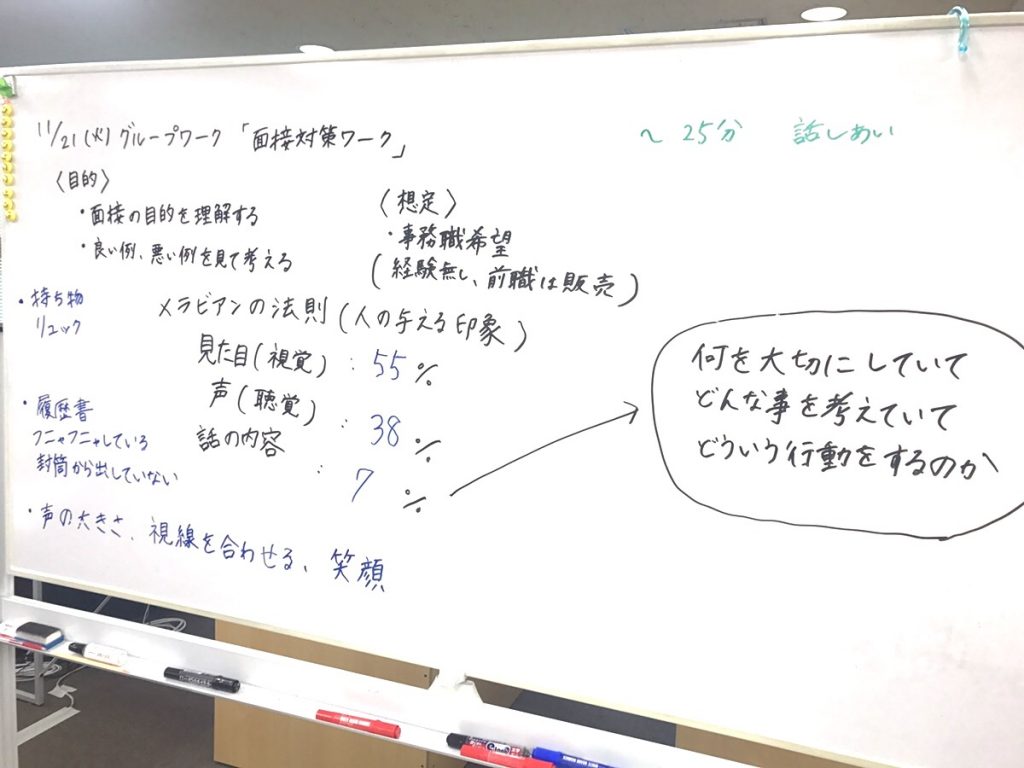 11/21(火)グループワーク「面接対策ワーク」
〜25分 話しあい
〈目的〉
・面接の目的を理解する
・良い例、悪い例を見て考える
〈想定〉
・事務職希望
(経験無し、前職は販売)
・持ち物
リュック
メラビアンの法則(人の与える印象)
見た目(視覚):55%
声(聴覚):38%
話の内容:7%
何を大切にしていて
どんな事を考えていて
どういう行動をするのか
・履歴書
フニャフニャしている
封筒から出していない
・声の大きさ、視線を合わせる、笑顔